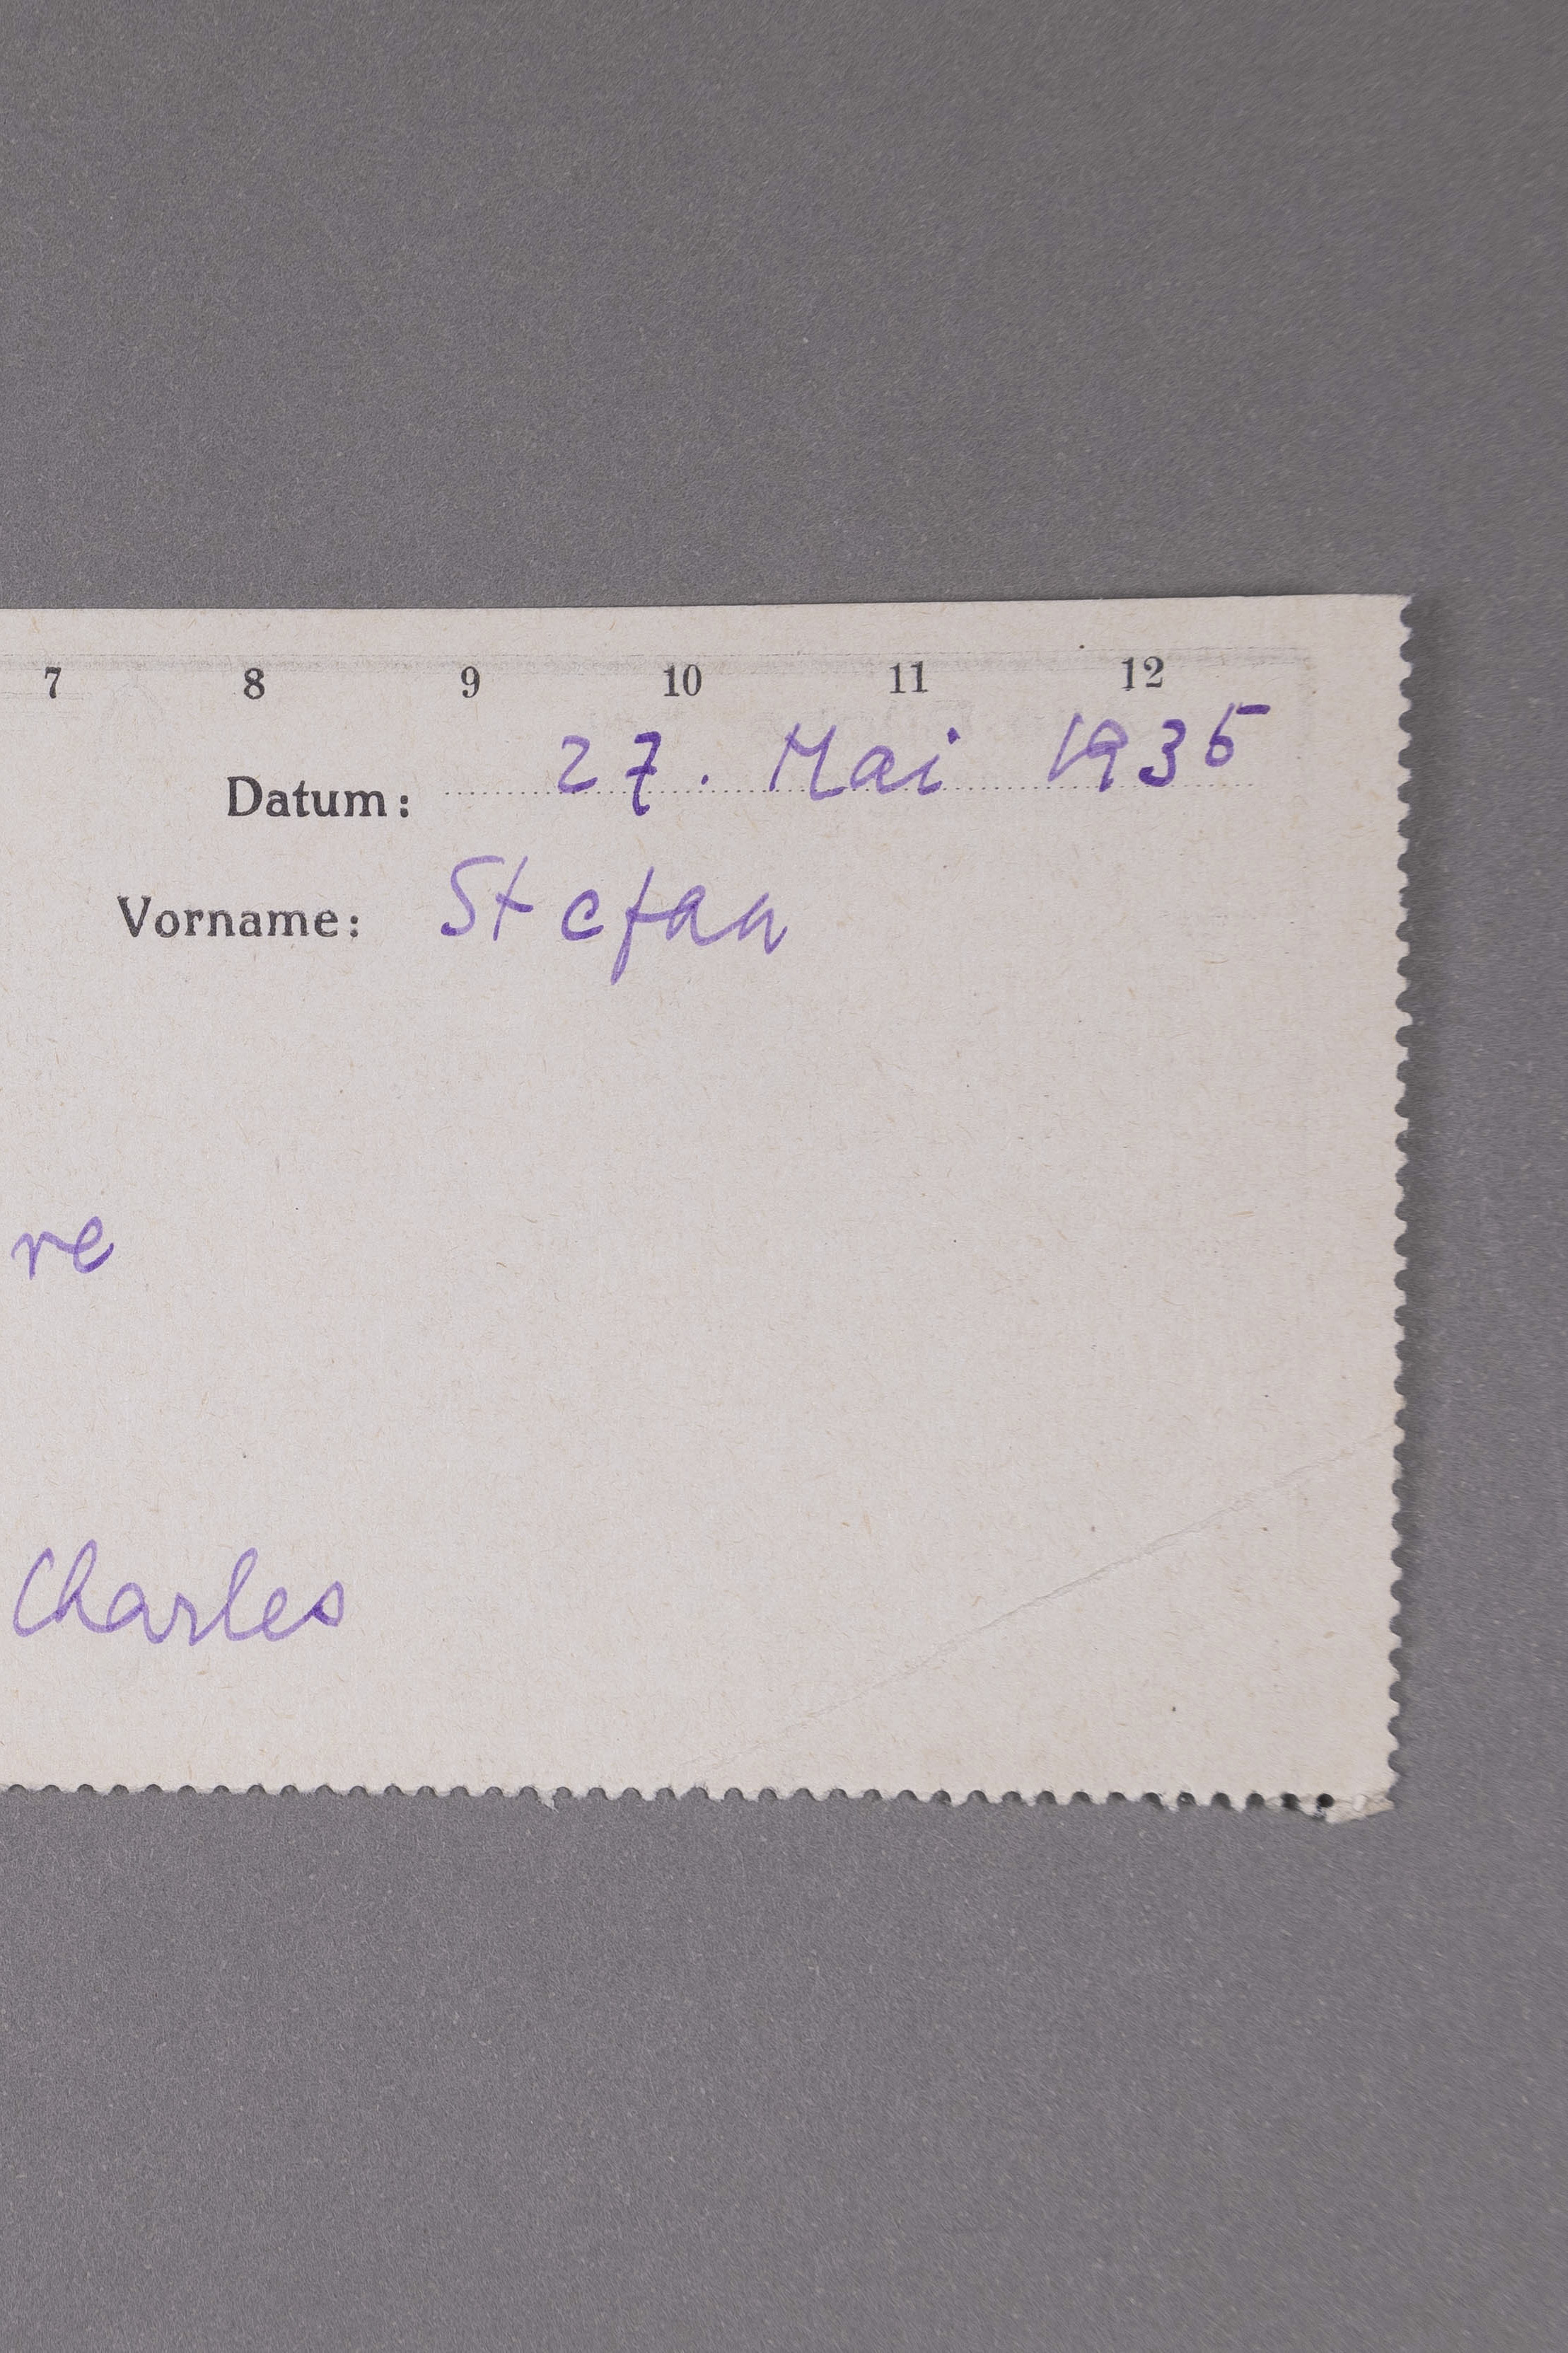 7 8 9 10 11 12
Datum: 27. Mai 1935
Vorname: Stefan
re
Charles